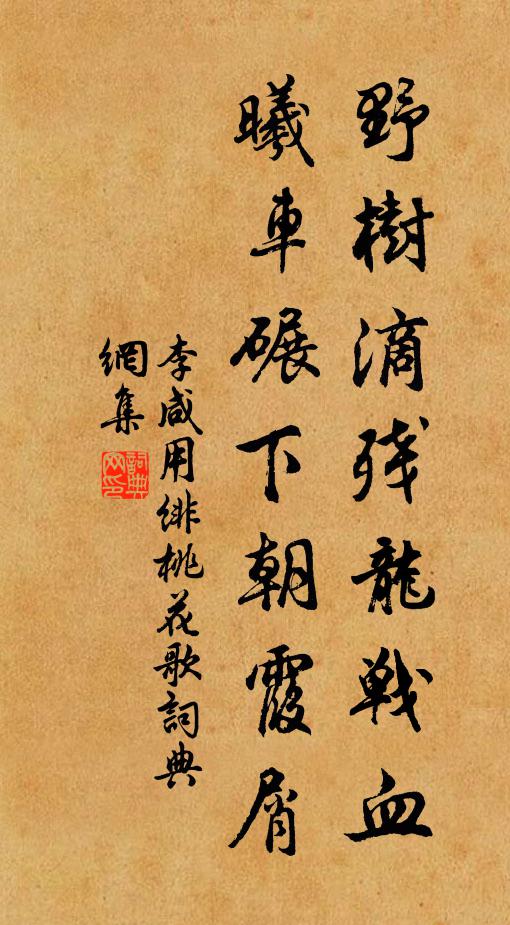 野樹滴残龍戦血
曦車碾下朝霞屑
李咸用緋桃花歌詞典
網集
詞典網印